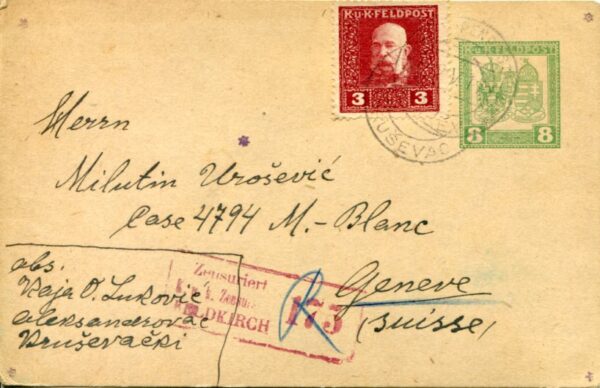 K.u.K.FELDPOST
3 3
K.u.K.FELDPOST
8 8
RUŠEVAC
Herrn
Milutin Urošević
Case 4794 M.-Blanc
Geneve
(Suisse)
abs.
Vaja O. Luković
Aleksandrovac
Kruševački
Zensuriert
k. u. k. Zensur
FELDKIRCH
175